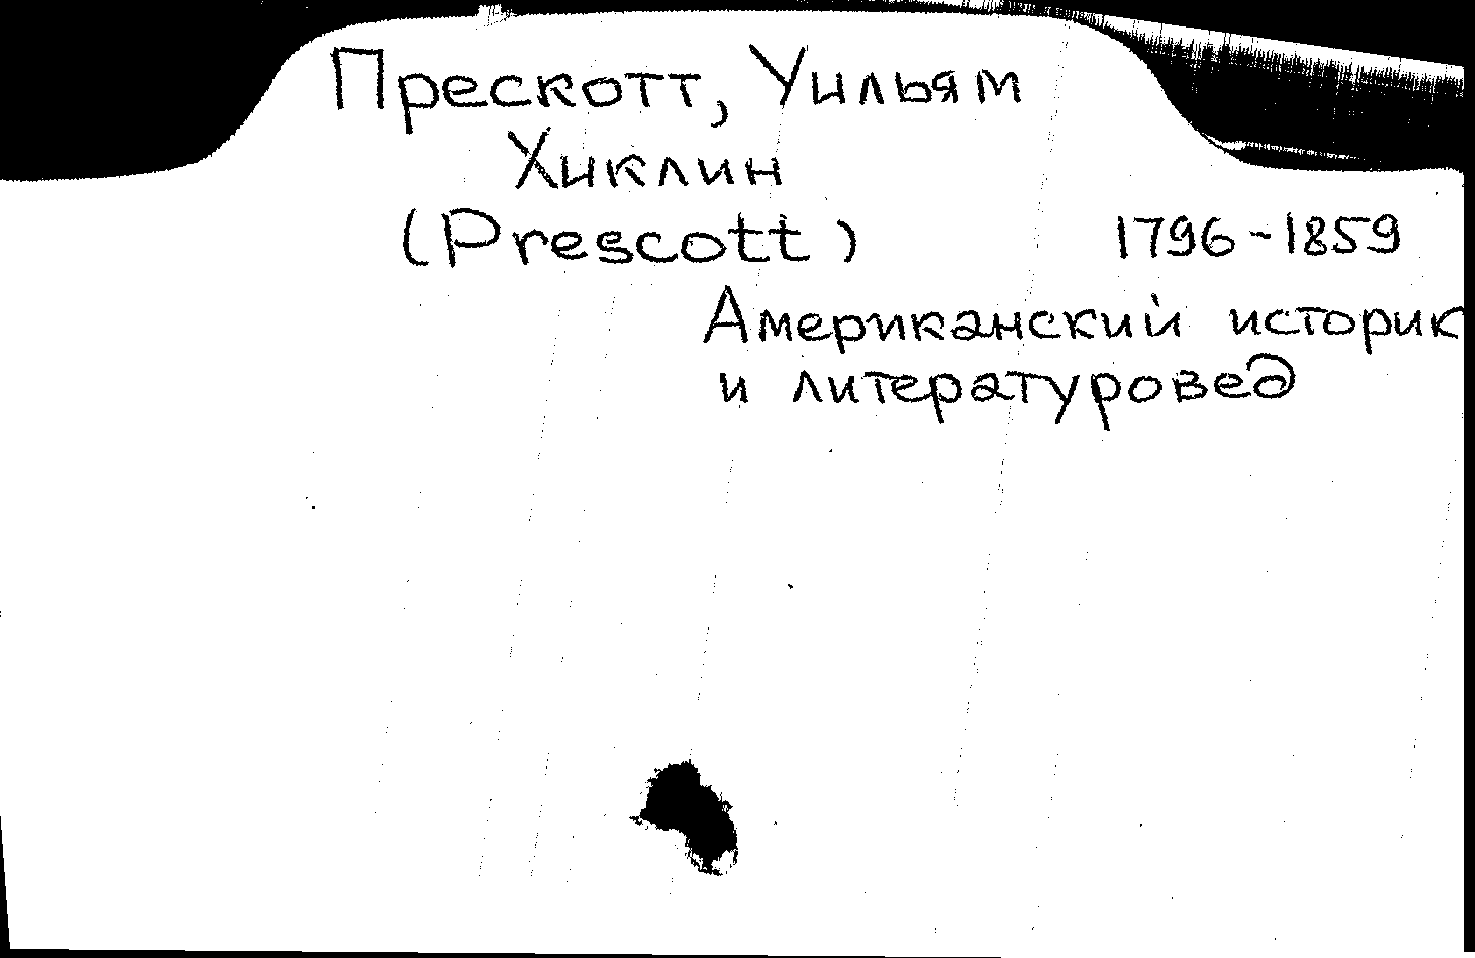 Прескотт, Уильям
Хиклин
(Prescott) 1796-1859
Американский историк
и литературовед